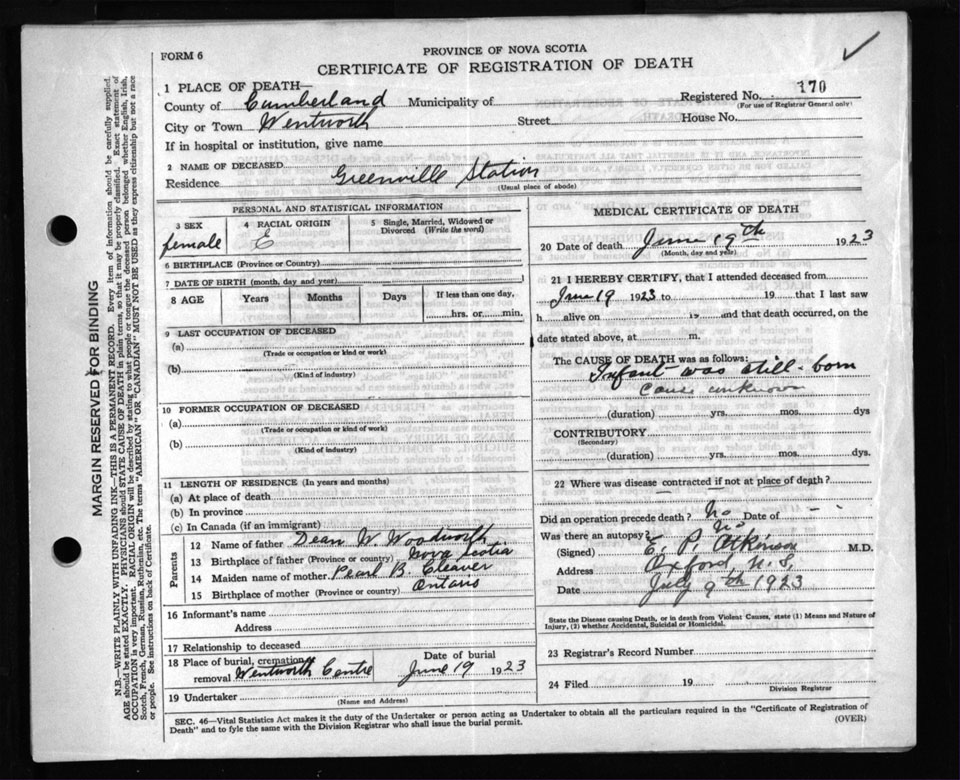 FORM 6
PROVINCE OF NOVA SCOTIA
CERTIFICATE OF REGISTRATION OF DEATH
1 PLACE OF DEATH—
Registered No. 170
(For use of Registrar General only)
County of Cumberland Municipality of
City or Town Wentworth Street House No.
If in hospital or institution, give name
2 NAME OF DECEASED
Residence Greenville Station
(Usual place of abode)
PERSONAL AND STATISTICAL INFORMATION
3 SEX 4 RACIAL ORIGIN 5 Single, Married, Widowed or Divorced (Write the word)
female E
6 BIRTHPLACE (Province or Country)
7 DATE OF BIRTH (month, day and year)
8 AGE Years Months Days If less than one day,
hrs. or min.
9 LAST OCCUPATION OF DECEASED
(a)
(Trade or occupation or kind or work)
(b)
(Kind of industry)
10 FORMER OCCUPATION OF DECEASED
(a)
(Trade or occupation or kind of work)
(b)
(Kind of industry)
11 LENGTH OF RESIDENCE (In years and months)
(a) At place of death
(b) In province
(c) In Canada (if an immigrant)
Parents
12 Name of father Dean W Woodworth
13 Birthplace of father (Province or country) Nova Scotia
14 Maiden name of mother Pearl B. Cleaver
15 Birthplace of mother (Province or country) Ontario
16 Informant's name
Address
17 Relationship to deceased
18 Place of burial, cremation Date of burial
removal Wentworth Centre June 19 1923
19 Undertaker
(Name and Address)
MEDICAL CERTIFICATE OF DEATH
20 Date of death June 19th 1923
(Month, day and year)
21 I HEREBY CERTIFY, that I attended deceased from
June 19 1923 to 19 that I last saw
h alive on 19 and that death occurred, on the
date stated above, at m.
The CAUSE OF DEATH was as follows:
Infant was still-born
Cause unknown
(duration) yrs. mos. dys
CONTRIBUTORY
(Secondary)
(duration) yrs. mos. dys.
22 Where was disease contracted if not at place of death?
Did an operation precede death? No Date of - -
Was there an autopsy? No
(Signed) E. P. Atkinson M.D.
Address Oxford, N.S.
Date July 9th 1923
State the Disease causing Death, or in death from Violent Causes, state (1) Means and Nature of
Injury, (2) whether Accidental, Suicidal or Homicidal.
23 Registrar's Record Number
24 Filed 19
Division Registrar
SEC. 46—Vital Statistics Act makes it the duty of the Undertaker or person acting as Undertaker to obtain all the particulars required in the "Certificate of Registration of
Death" and to fyle the same with the Division Registrar who shall issue the burial permit.
(OVER)
MARGIN RESERVED FOR BINDING
N.B.—WRITE PLAINLY WITH UNFADING INK—THIS IS A PERMANENT RECORD. Every item of information should be carefully supplied.
AGE should be stated EXACTLY. PHYSICIANS should STATE CAUSE OF DEATH in plain terms, so that it may be properly classified. Exact statement of
OCCUPATION is very important. RACIAL ORIGIN will be described by stating to what people or tongue the deceased person belonged whether English, Irish,
Scotch, French, German, Russian, Ruthenian, etc. The terms "AMERICAN" OR "CANADIAN" MUST NOT BE USED as they express citizenship but not a race
or people. See instructions on back of Certificate.